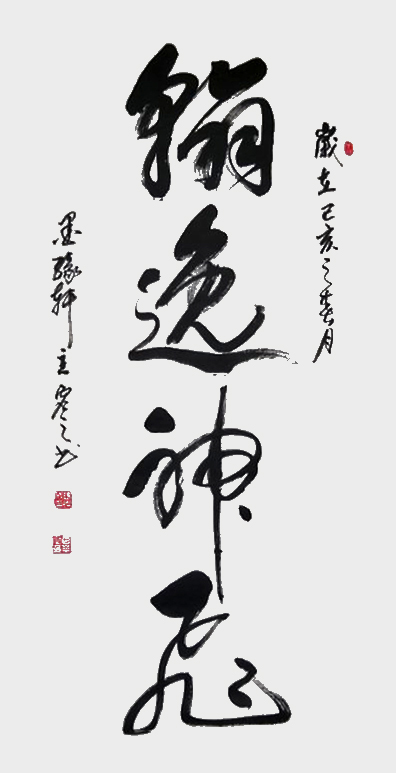 歲在己亥之春月
翰逸神飛
墨緣軒主寒之书